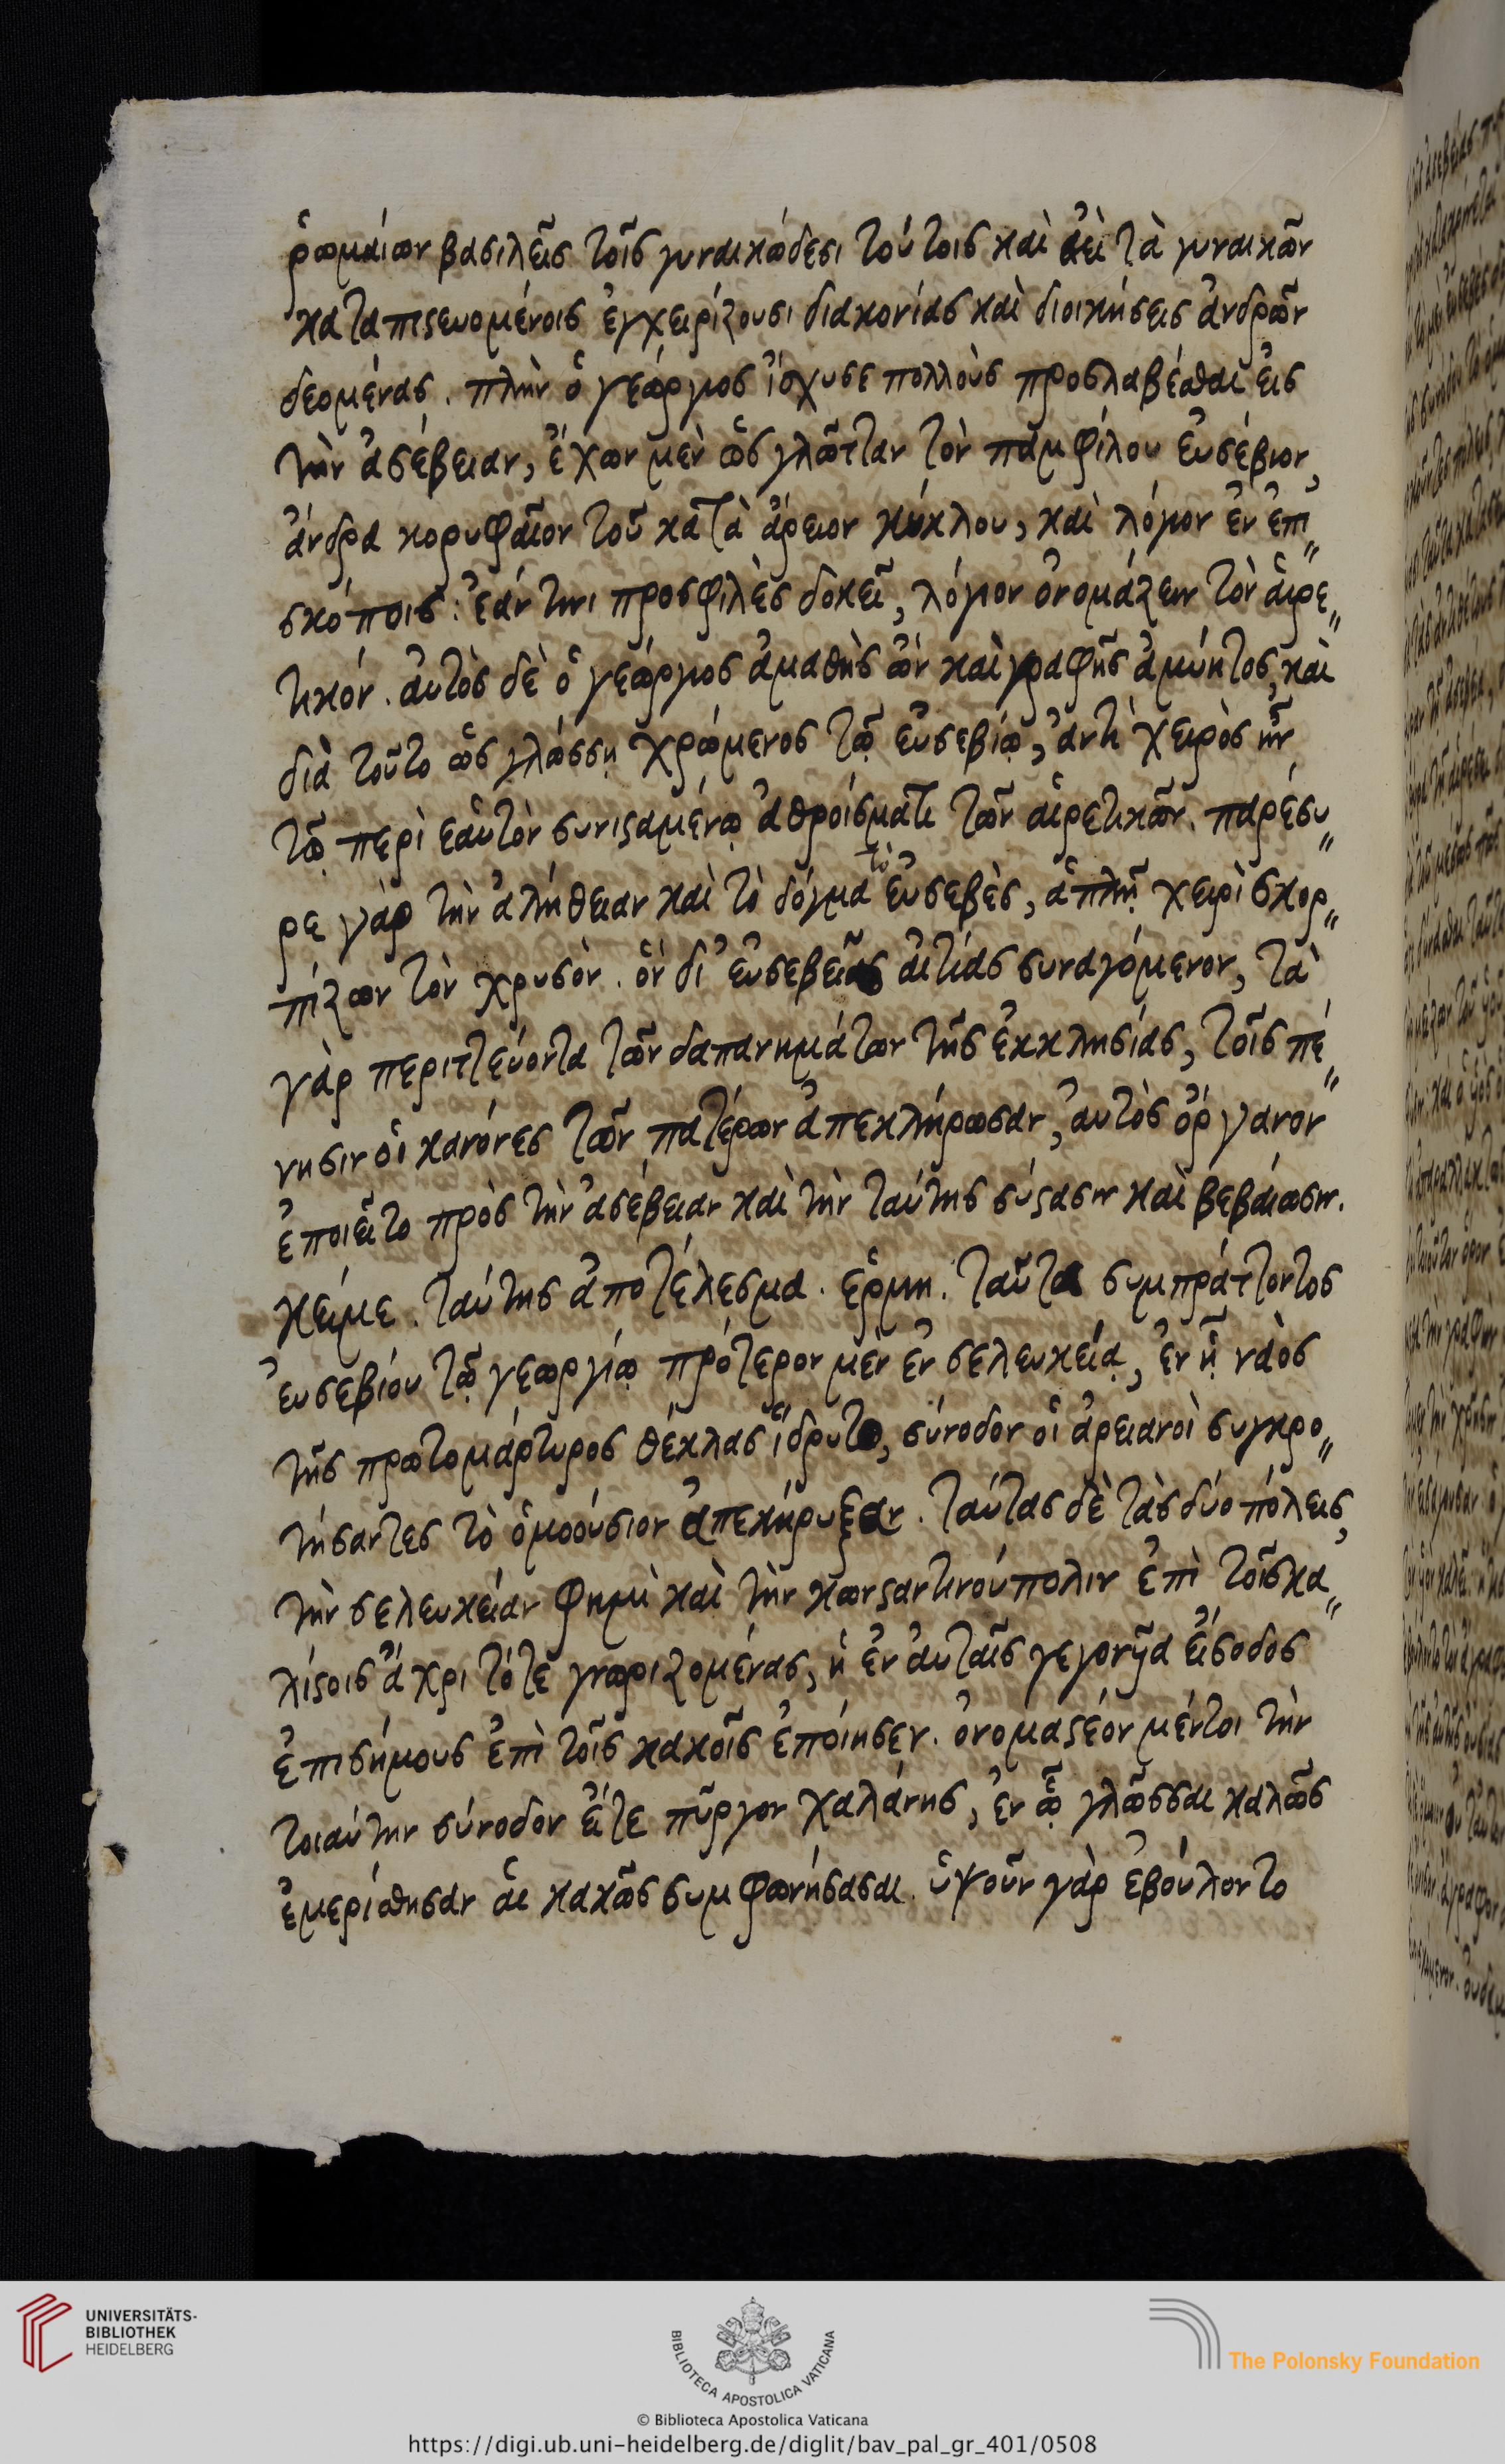 ῥωμαίων βασιλεῖς τοῖς γυναικώδεσι τούτοις καὶ ἀεὶ τὰ γυναικῶν
καταπιϛευομένοις ἐγχειρίζουσι διακονίας καὶ διοικήσεις ἀνδρῶν
δεομένας. πλὴν ὁ γεώργιος ἴσχυσε πολλοὺς προσλαβέσθαι εἰς
τὴν ἀσέβειαν, ἔχων μὲν ὡς γλῶτταν τὸν παμφίλου εὐσέβιον,
ἄνδρα κορυφαῖον τοῦ κατὰ ἄρειον κύκλου, καὶ λόγιον ἐν ἐπι〃
σκόποις: ἐάν τινι προσφιλὲς δοκεῖ, λόγιον ὀνομάζειν τὸν αἱρε〃
τικόν. αὐτὸς δὲ ὁ γεώργιος ἀμαθὴς ὢν καὶ γραφῆς ἀμύητος, καὶ
διὰ τοῦτο ὡς γλώσσῃ χρώμενος τῷ εὐσεβίῳ, ἀντὶ χειρὸς ἦν
τῷ περὶ ἑαυτὸν συνιϛαμένῳ ἀθροίσματι τῶν αἱρετικῶν. παρέσυ〃
ρε γὰρ τὴν ἀλήθειαν καὶ τὸ δόγμα τὸ εὐσεβὲς, ἁπλῇ χειρὶ σκορ〃
πίζων τὸν χρυσὸν. ὃν δι' εὐσεβεῖς αἰτίας συναγόμενον, τὰ
γὰρ περιττεύοντα τῶν δαπανημάτων τῆς ἐκκλησίας, τοῖς πέ〃
νησιν οἱ κανόνες τῶν πατέρων ἀπεκλήρωσαν, αὐτὸς ὄργανον
ἐποιεῖτο πρὸς τὴν ἀσέβειαν καὶ τὴν ταύτης σύϛασιν καὶ βεβαίωσιν.
κείμε. ταύτης ἀποτέλεσμα. ἑρμη. ταῦτα συμπράττοντος
εὐσεβίου τῷ γεωργίῳ πρότερον μὲν ἐν σελευκείᾳ, ἐν ᾗ ναὸς
τῆς πρωτομάρτυρος θέκλας ἵδρυτο, σύνοδον οἱ ἀρειανοὶ συγκρο〃
τήσαντες τὸ ὁμοούσιον ἀπεκήρυξαν. ταύτας δὲ τὰς δύο πόλεις,
τὴν σελευκείαν φημὶ καὶ τὴν κωνϛαντινούπολιν ἐπὶ τοῖς κα〃
λίϛοις ἄχρι τότε γνωριζομένας, ἡ ἐν αὐταῖς γεγονῦα εἴσοδος
ἐπισήμους ἐπὶ τοῖς κακοῖς ἐποίησεν. ὀνομαϛέον μέντοι τὴν
τοιαύτην σύνοδον εἴτε πῦργον χαλάνης, ἐν ᾧ γλῶσσαι καλῶς
ἐμερίσθησαν αἱ κακῶς συμφωνήσασαι. ὑψοῦν γὰρ ἐβούλοντο
UNIVERSITÄTS-
BIBLIOTHEK
HEIDELBERG
BIBLIOTECA APOSTOLICA VATICANA
The Polonsky Foundation
© Biblioteca Apostolica Vaticana
https://digi.ub.uni-heidelberg.de/diglit/bav_pal_gr_401/0508